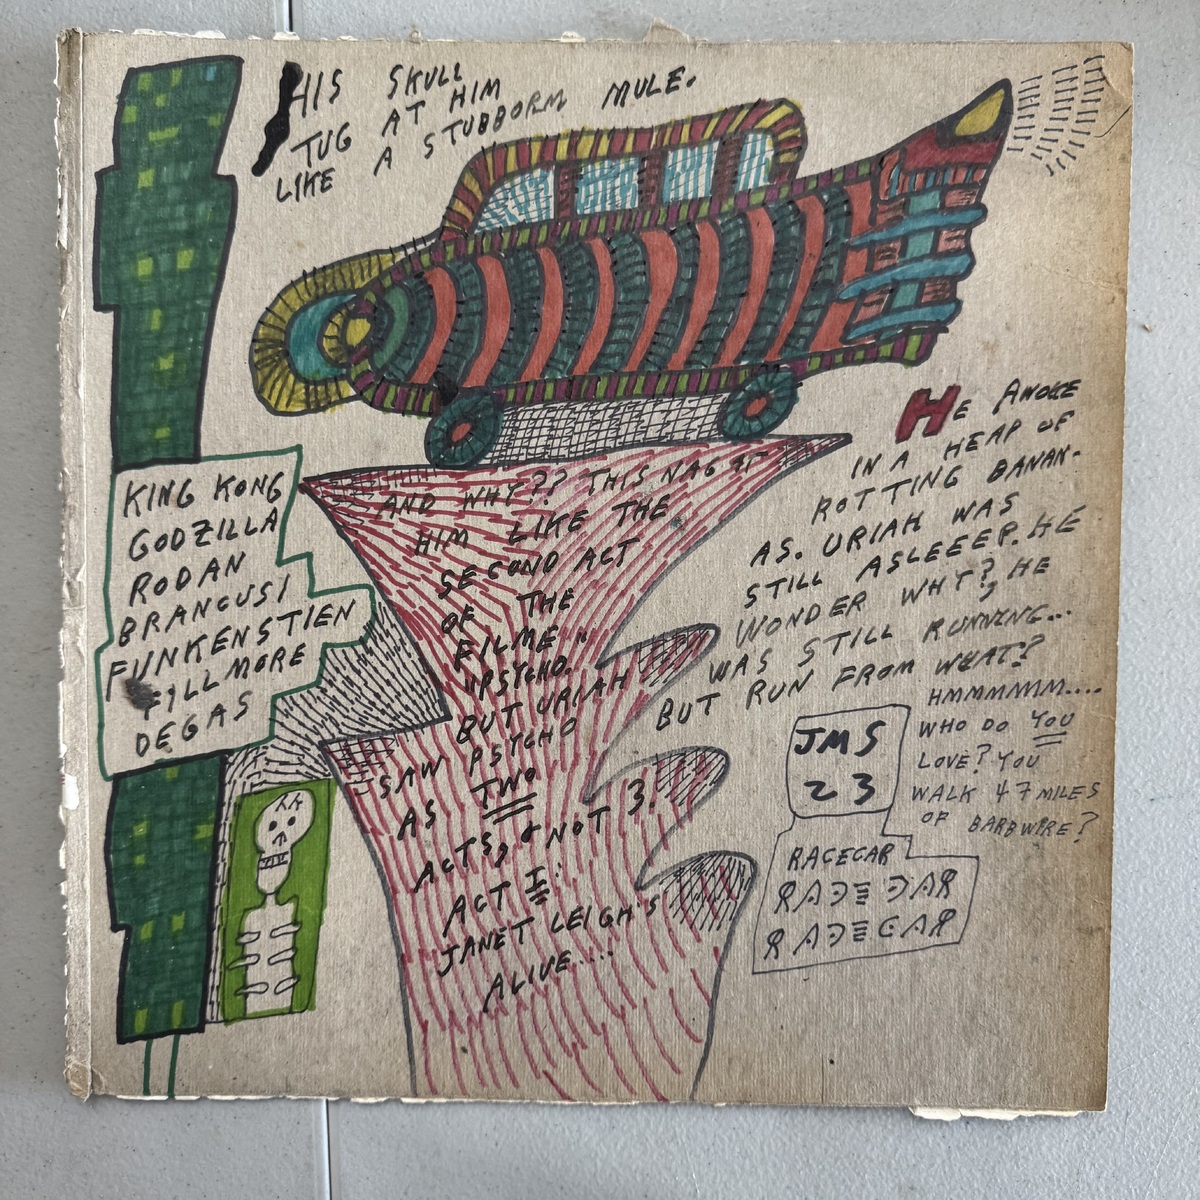 HIS SKULL
TUG AT HIM
LIKE A STUBBORM MULE.
KING KONG
GODZILLA
RODAN
BRANCUSI
FUNKENSTIEN
FILLMORE
DEGAS
AND WHY?? THIS NAG AT
HIM LIKE THE
SECOND ACT
OF THE
FILME
"PSYCHO."
BUT URIAH
SAW PSYCHO
AS TWO
ACTS, & NOT 3!
ACT I:
JANET LEIGH'S
ALIVE.....
HE AWOKE
IN A HEAP OF
ROTTING BANAN-
AS. URIAH WAS
STILL ASLEEEP. HE
WONDER WHY?, HE
WAS STILL RUNNING...
BUT RUN FROM WHAT?
HMMMMMM....
WHO DO YOU
LOVE? YOU
WALK 47 MILES
OF BARBWIRE?
JMS
23
RACECAR
RAƆE ƆAR
RAƆECAR